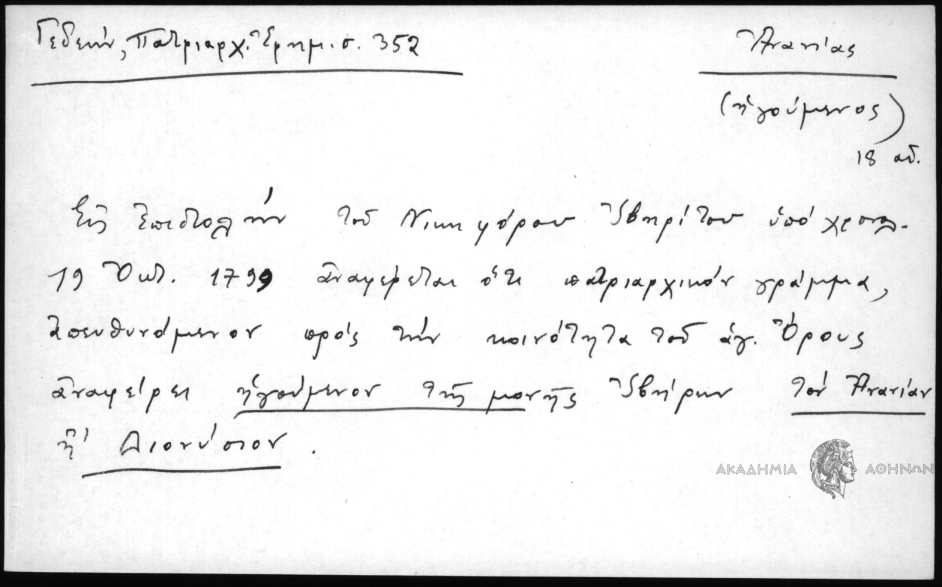 Γεδεών, Πατριαρχ. Ἐφημ. σ. 352
Ἀνανίας
(ἡγούμενος)
18 αἰ.
Εἰς ἐπιστολὴν τοῦ Νικηφόρου Ἰβηρίτου ὑπὸ χρονολ.
19 Ὀκτ. 1799 ἀναφέρεται ὅτι πατριαρχικὸν γράμμα,
ἀπευθυνόμενον πρὸς τὴν κοινότητα τοῦ ἁγ. Ὄρους
ἀναφέρει ἡγούμενον τῆς μονῆς Ἰβήρων τὸν Ἀνανίαν
ἢ Διονύσιον.
ΑΚΑΔΗΜΙΑ ΑΘΗΝΩΝ